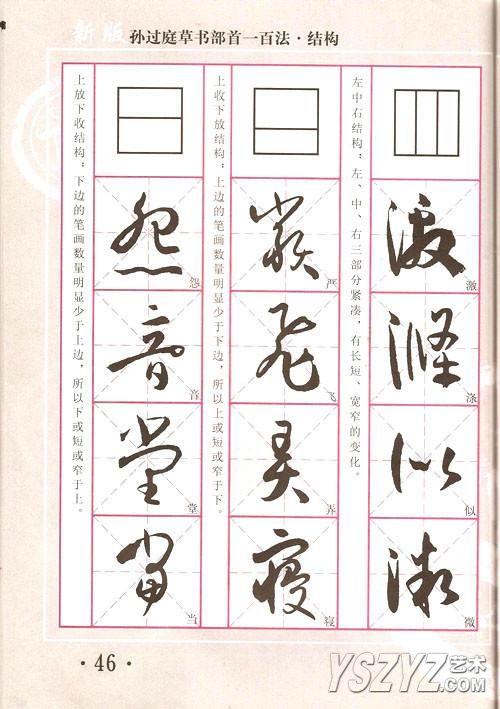 新版 孙过庭草书部首一百法·结构
左中右结构：左、中、右三部分紧凑，有长短、宽窄的变化。
激
涤
似
微
上收下放结构：上边的笔画数量明显少于下边，所以上或短或窄于下。
严
飞
弄
寝
上放下收结构：下边的笔画数量明显少于上边，所以下或短或窄于上。
怨
音
堂
当
·46·
YSZYZ 艺术 .com